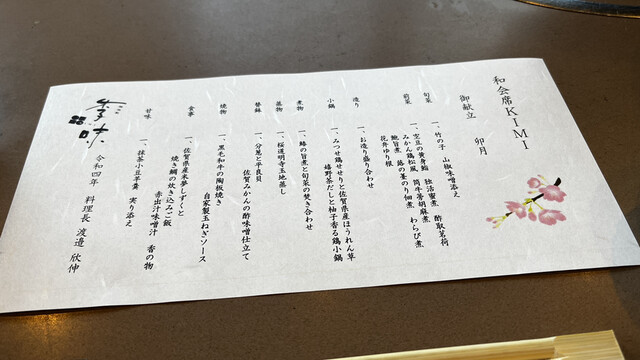 和会席KIMI
御献立 卯月
旬菜
一、竹の子 山椒味噌添え
前菜
一、空豆の黄身鮨 独活蜜煮 酢取茗荷
みかん鶏松風 筒牛蒡胡麻煮
鮑旨煮 蕗の薹の佃煮 わらび煮
花弁ゆり根
造り
一、お造り盛り合わせ
小鍋
一、みつせ鶏せせりと佐賀県産ほうれん草
嬉野茶だしと柚子香る鶏小鍋
煮物
一、鰆の旨煮と旬菜の焚き合わせ
蒸物
一、桜道明寺玉地蒸し
替鉢
一、分葱と平良貝
佐賀みかんの酢味噌仕立て
焼物
一、黒毛和牛の陶板焼き
自家製玉ねぎソース
食事
一、佐賀県産米夢しずくと
焼き鯛の炊き込みご飯
赤出汁味噌汁 香の物
甘味
一、抹茶小豆羊羹 実り添え
令和四年 料理長 渡邉 欣伸